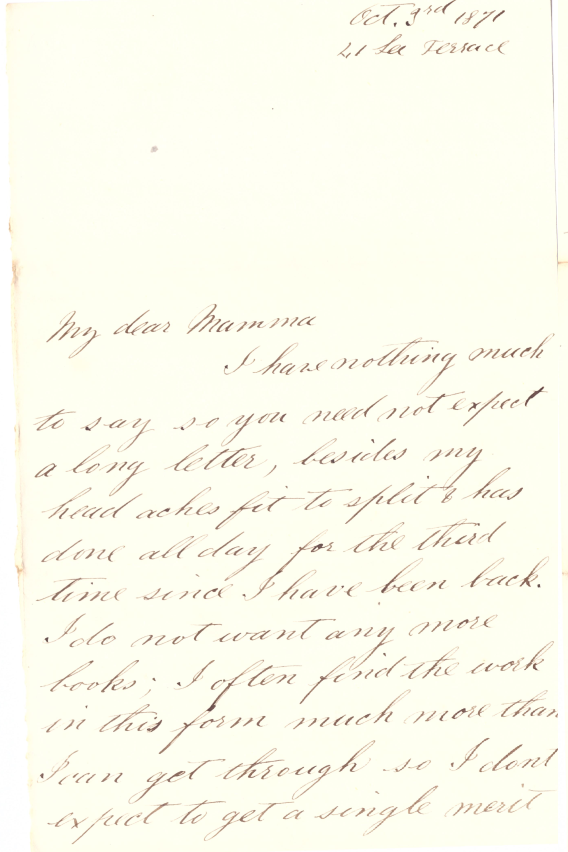 Oct. 3rd 1871
21 Sea Terrace
My dear Mamma
I have nothing much
to say so you need not expect
a long letter, besides my
head aches fit to split & has
done all day for the third
time since I have been back.
I do not want any more
books; I often find the work
in this form much more than
I can get through so I dont
expect to get a single merit